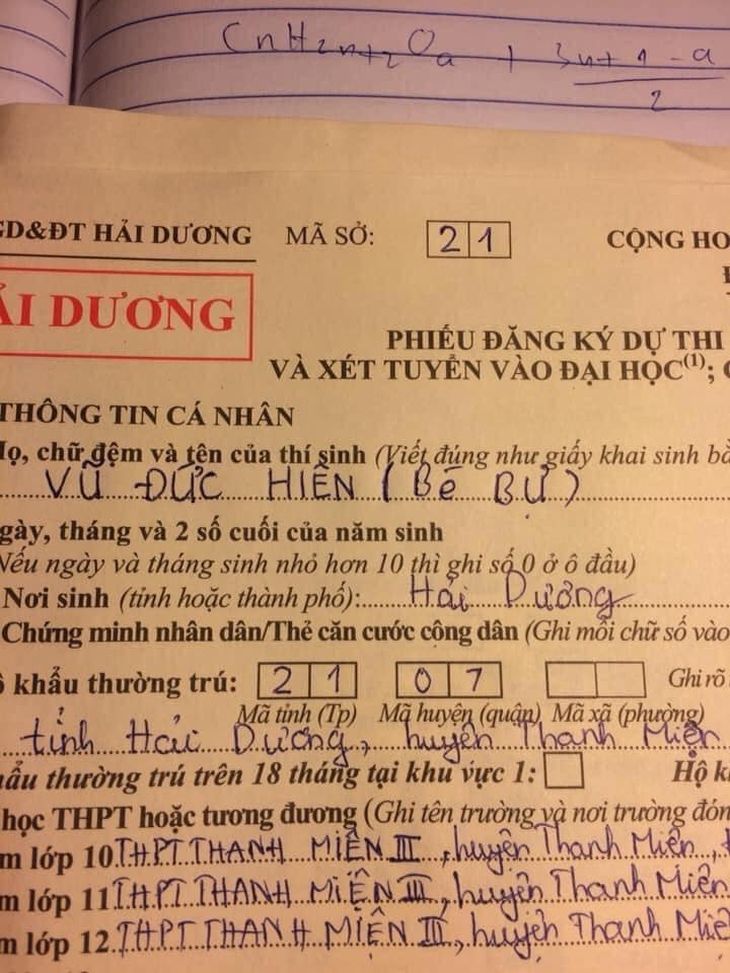 CnH2n+2Oa + 3n+1-a
2
GD&ĐT HẢI DƯƠNG MÃ SỞ: 21 CỘNG HO
ẢI DƯƠNG
PHIẾU ĐĂNG KÝ DỰ THI
VÀ XÉT TUYỂN VÀO ĐẠI HỌC(1);
THÔNG TIN CÁ NHÂN
Họ, chữ đệm và tên của thí sinh (Viết đúng như giấy khai sinh bằ
VŨ ĐỨC HIỀN (Bé BỰ)
gày, tháng và 2 số cuối của năm sinh
Nếu ngày và tháng sinh nhỏ hơn 10 thì ghi số 0 ở ô đầu)
Nơi sinh (tỉnh hoặc thành phố): Hải Dương
Chứng minh nhân dân/Thẻ căn cước công dân (Ghi mỗi chữ số vào
ộ khẩu thường trú: 21 07 Ghi rõ
Mã tỉnh (Tp) Mã huyện (quận) Mã xã (phường)
tỉnh Hải Dương, huyện Thanh Miện
hẩu thường trú trên 18 tháng tại khu vực 1: Hộ k
học THPT hoặc tương đương (Ghi tên trường và nơi trường đón
m lớp 10 THPT THANH MIỆN III, huyện Thanh Miện, t
m lớp 11 THPT THANH MIỆN III, huyện Thanh Miện
m lớp 12 THPT THANH MIỆN III, huyện Thanh Miệ